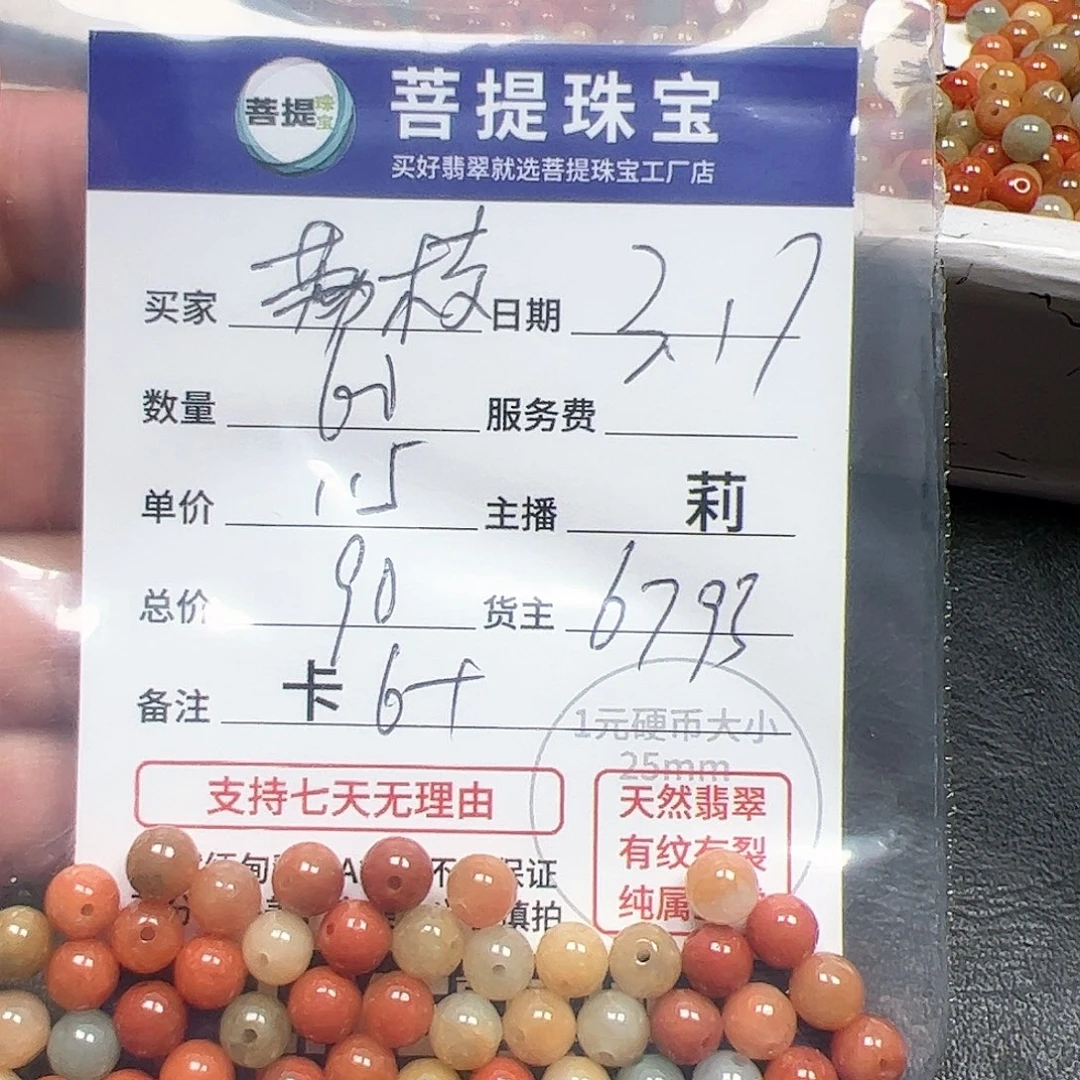 菩提珠宝
菩提珠宝
买好翡翠就选菩提珠宝工厂店
买家 荔枝 日期 3.17
数量 61 服务费
单价 1.5 主播 莉
总价 90 货主 6793
备注 卡6+
1元硬币大小
25mm
支持七天无理由
天然翡翠
有纹有裂
纯属
保证
慎拍